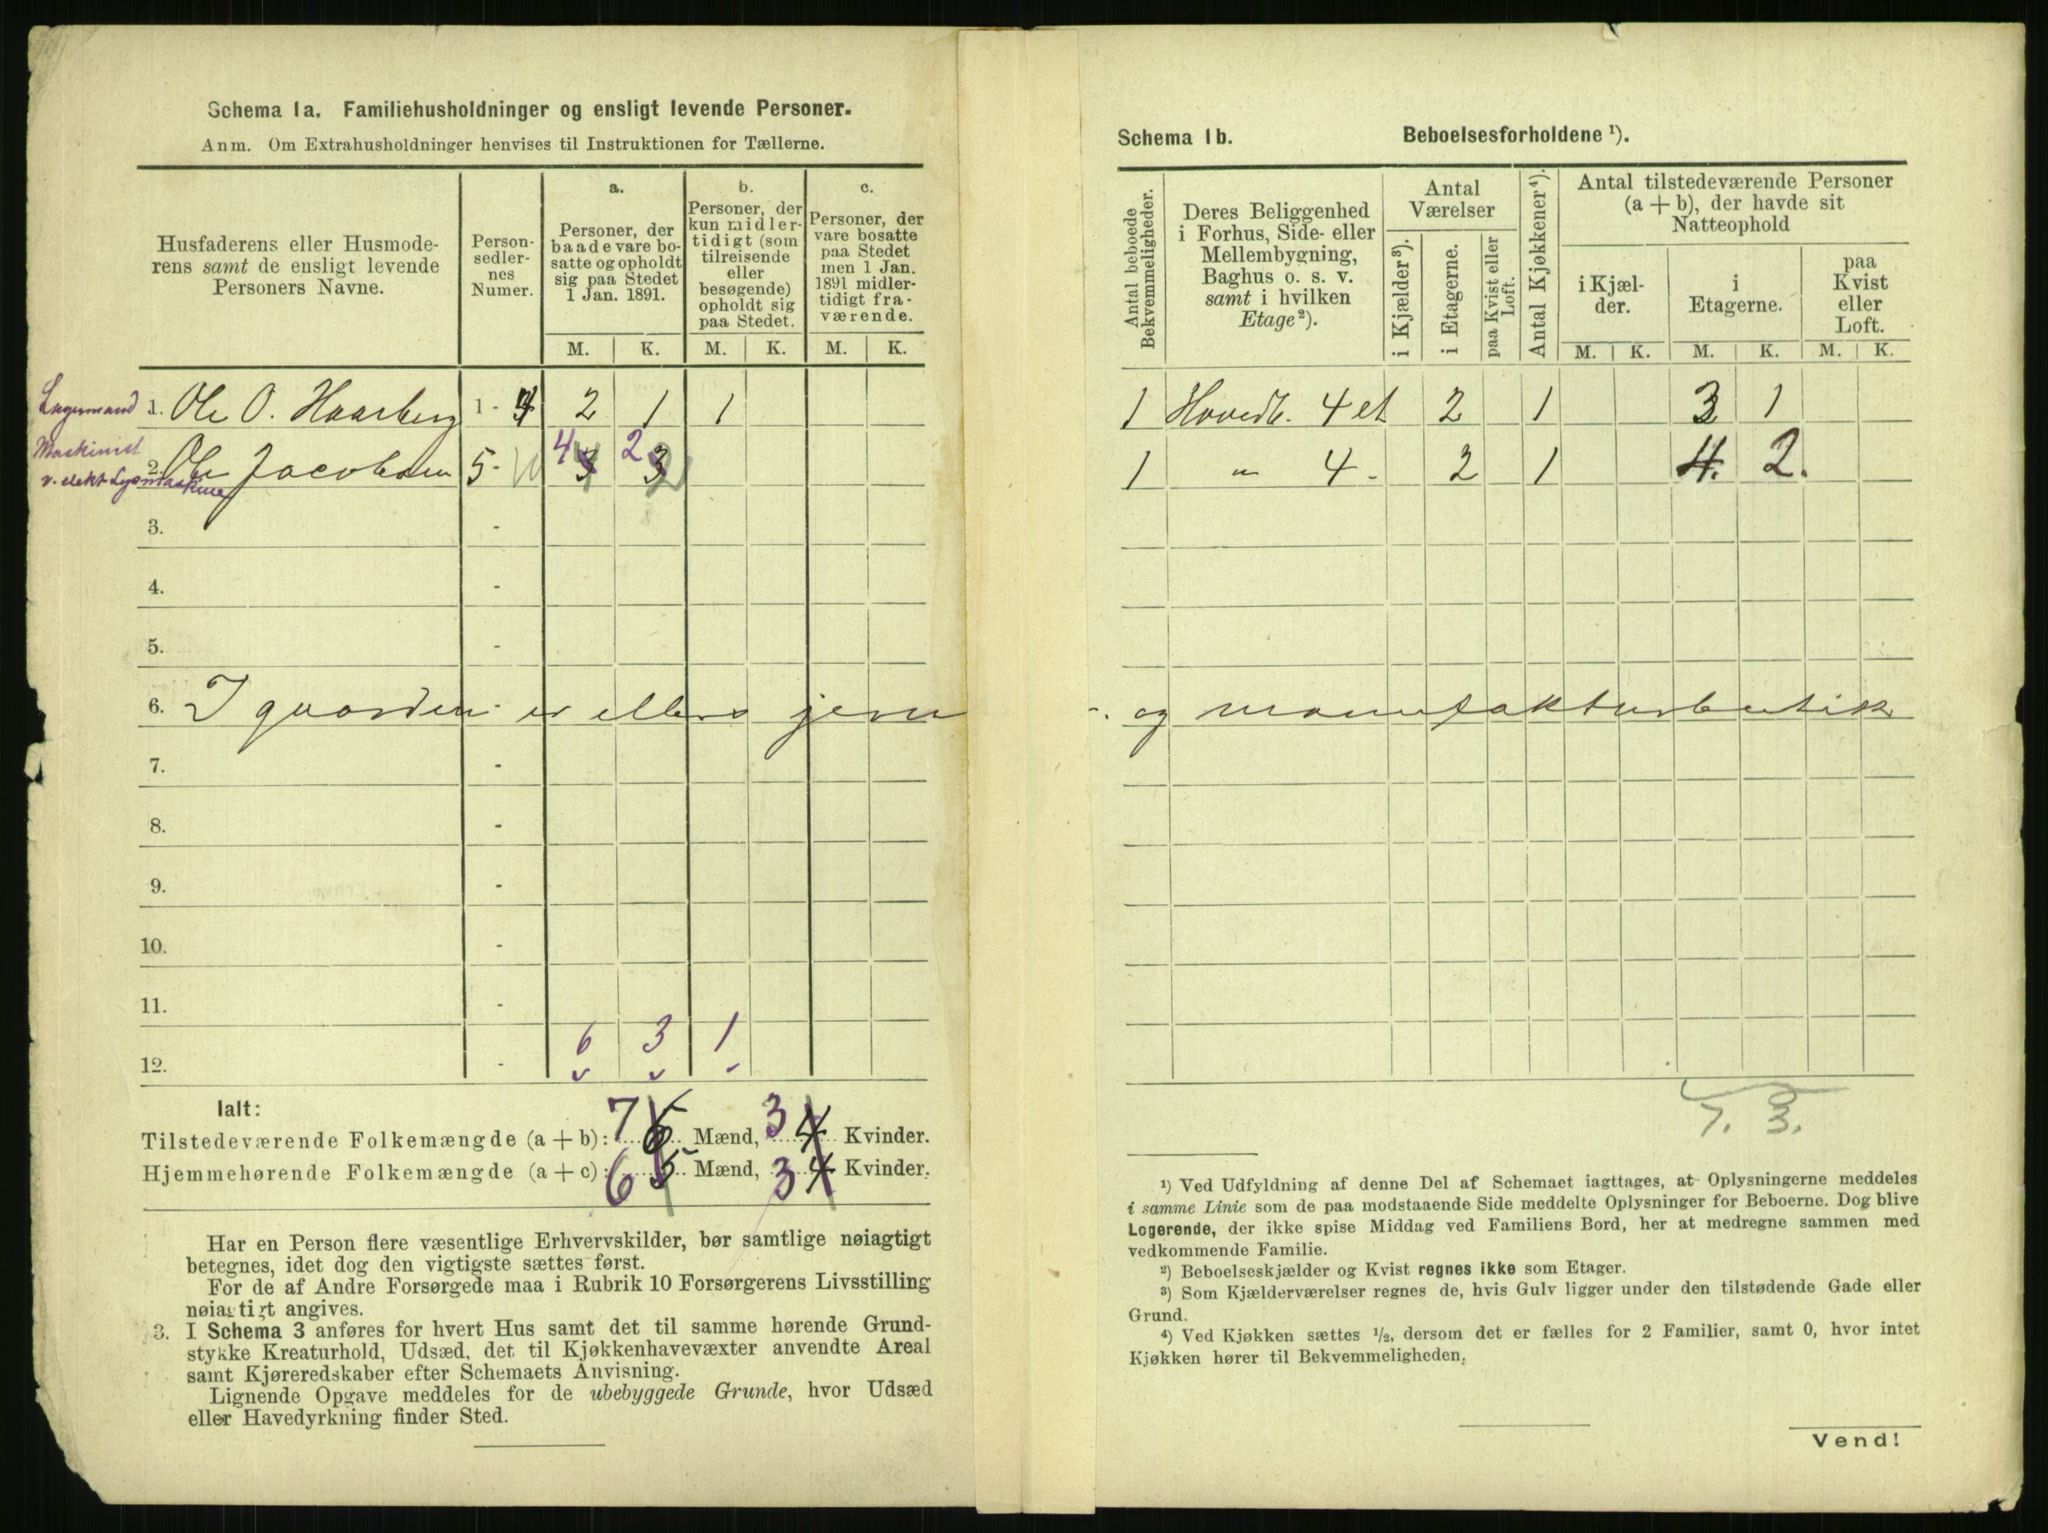 Schema 1a. Familiehusholdninger og ensligt levende Personer.
Anm. Om Extrahusholdninger henvises til Instruktionen for Tællerne.
Husfaderens eller Husmode-
rens samt de ensligt levende
Personers Navne.
Person-
sedler-
nes
Numer.
a.
Personer, der
baade vare bo-
satte og opholdt
sig paa Stedet
1 Jan. 1891.
b.
Personer, der
kun midler-
tidigt (som
tilreisende
eller
besøgende)
opholdt sig
paa Stedet.
c.
Personer, der
vare bosatte
paa Stedet
men 1 Jan.
1891 midler-
tidigt fra-
værende.
M. K. M. K. M. K.
Lagermand 1. Ole O. Haarberg 1 - 4 2 1 1
Maskinist
2. Ole Jacobsen 5 - 10 4 2
v. elekt. Lysmaskine
3. -
4. -
5. -
6. I gaarden er ellers jern
7. -
8. -
9. -
10. -
11. -
6 3 1
12. -
Ialt:
Tilstedeværende Folkemængde (a + b): 7 Mænd, 3 Kvinder.
Hjemmehørende Folkemængde (a + c): 6 Mænd, 3 Kvinder.
Har en Person flere væsentlige Erhvervskilder, bør samtlige nøiagtigt
betegnes, idet dog den vigtigste sættes først.
For de af Andre Forsørgede maa i Rubrik 10 Forsørgerens Livsstilling
nøiagtigt angives.
3. I Schema 3 anføres for hvert Hus samt det til samme hørende Grund-
stykke Kreaturhold, Udsæd, det til Kjøkkenhavevæxter anvendte Areal
samt Kjøreredskaber efter Schemaets Anvisning.
Lignende Opgave meddeles for de ubebyggede Grunde, hvor Udsæd
eller Havedyrkning finder Sted.
Schema 1b. Beboelsesforholdene ¹).
Antal beboede
Bekvemmeligheder.
Deres Beliggenhed
i Forhus, Side- eller
Mellembygning,
Baghus o. s. v.
samt i hvilken
Etage²).
Antal
Værelser
i Kjælder³).
i Etagerne.
paa Kvist eller
Loft.
Antal Kjøkkener⁴).
Antal tilstedeværende Personer
(a + b), der havde sit
Natteophold
i Kjæl-
der.
i
Etagerne.
paa
Kvist
eller
Loft.
M. K. M. K. M. K.
1 Hovedb. 4 et 2 1 3 1
1 " 4 - 2 1 4. 2.
og manufakturbutik
7. 3.
¹) Ved Udfyldning af denne Del af Schemaet iagttages, at Oplysningerne meddeles
i samme Linie som de paa modstaaende Side meddelte Oplysninger for Beboerne. Dog blive
Logerende, der ikke spise Middag ved Familiens Bord, her at medregne sammen med
vedkommende Familie.
²) Beboelseskjælder og Kvist regnes ikke som Etager.
³) Som Kjælderværelser regnes de, hvis Gulv ligger under den tilstødende Gade eller
Grund.
⁴) Ved Kjøkken sættes ½, dersom det er fælles for 2 Familier, samt 0, hvor intet
Kjøkken hører til Bekvemmeligheden.
Vend!